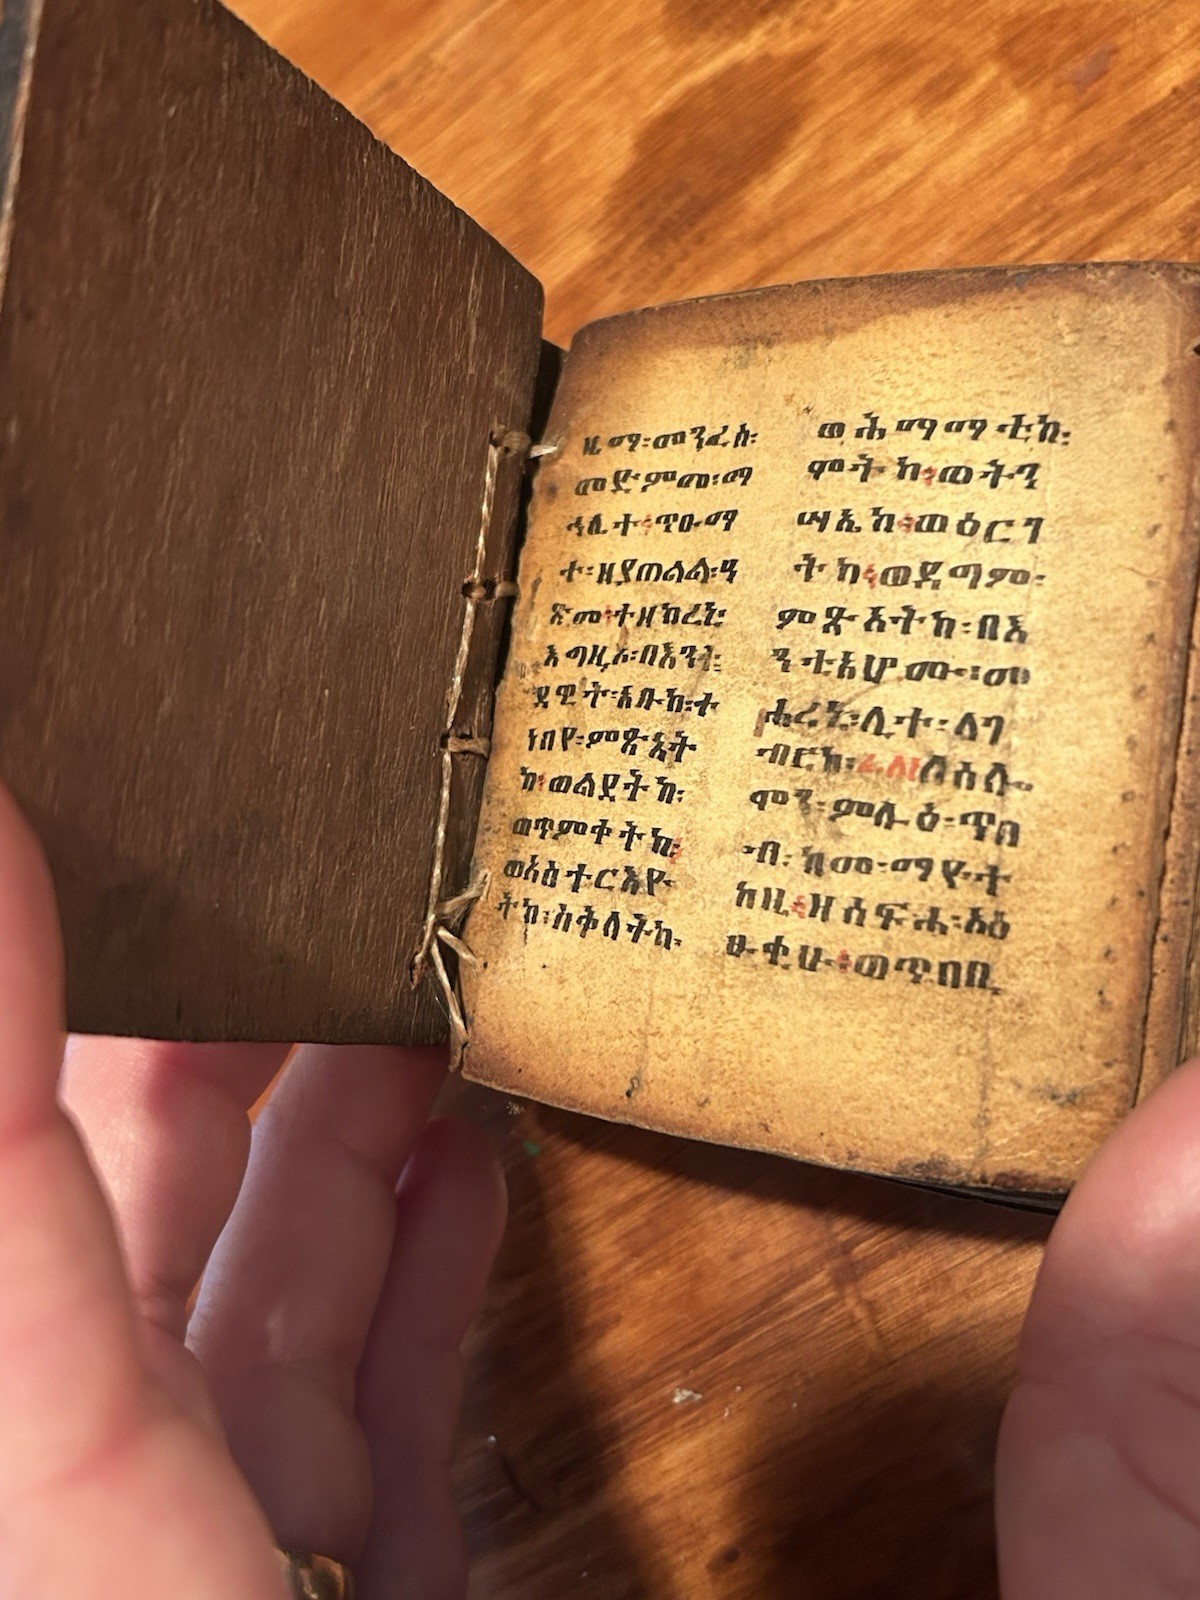 ዚማ፡መንፈስ፡
መድምመ፡ማ
኏ሊተ፡ጥዑማ
ተ፡ዘያጠልል፡ዓ
ጽመ፡ተዘከረኒ፡
እግዚኦ፡በእንተ፡
ደዊት፡አቡከ፡ተ
ነበየ፡ምጽአት
ከ፡ወልደትከ፡
ወጥምቀትከ፡
ወአስተርእዮ
ትከ፡ስቅለትከ፡
ወሕማማቲከ፡
ሞትከ፡ወትን
ሣኤከ፡ወዕርገ
ትከ፡ወዳግም፡
ምጽአትከ፡በእ
ንተአሆሙ፡መ
ሐረኒ፡ሊተ፡ለገ
ብርከ፡ለሰሎ
ሞን፡ምሉዕ፡ጥበ
ብ፡
ከዚ፡ዘሰፍሐ፡አዕ
ፁቂሁ፡ወጥበቢ